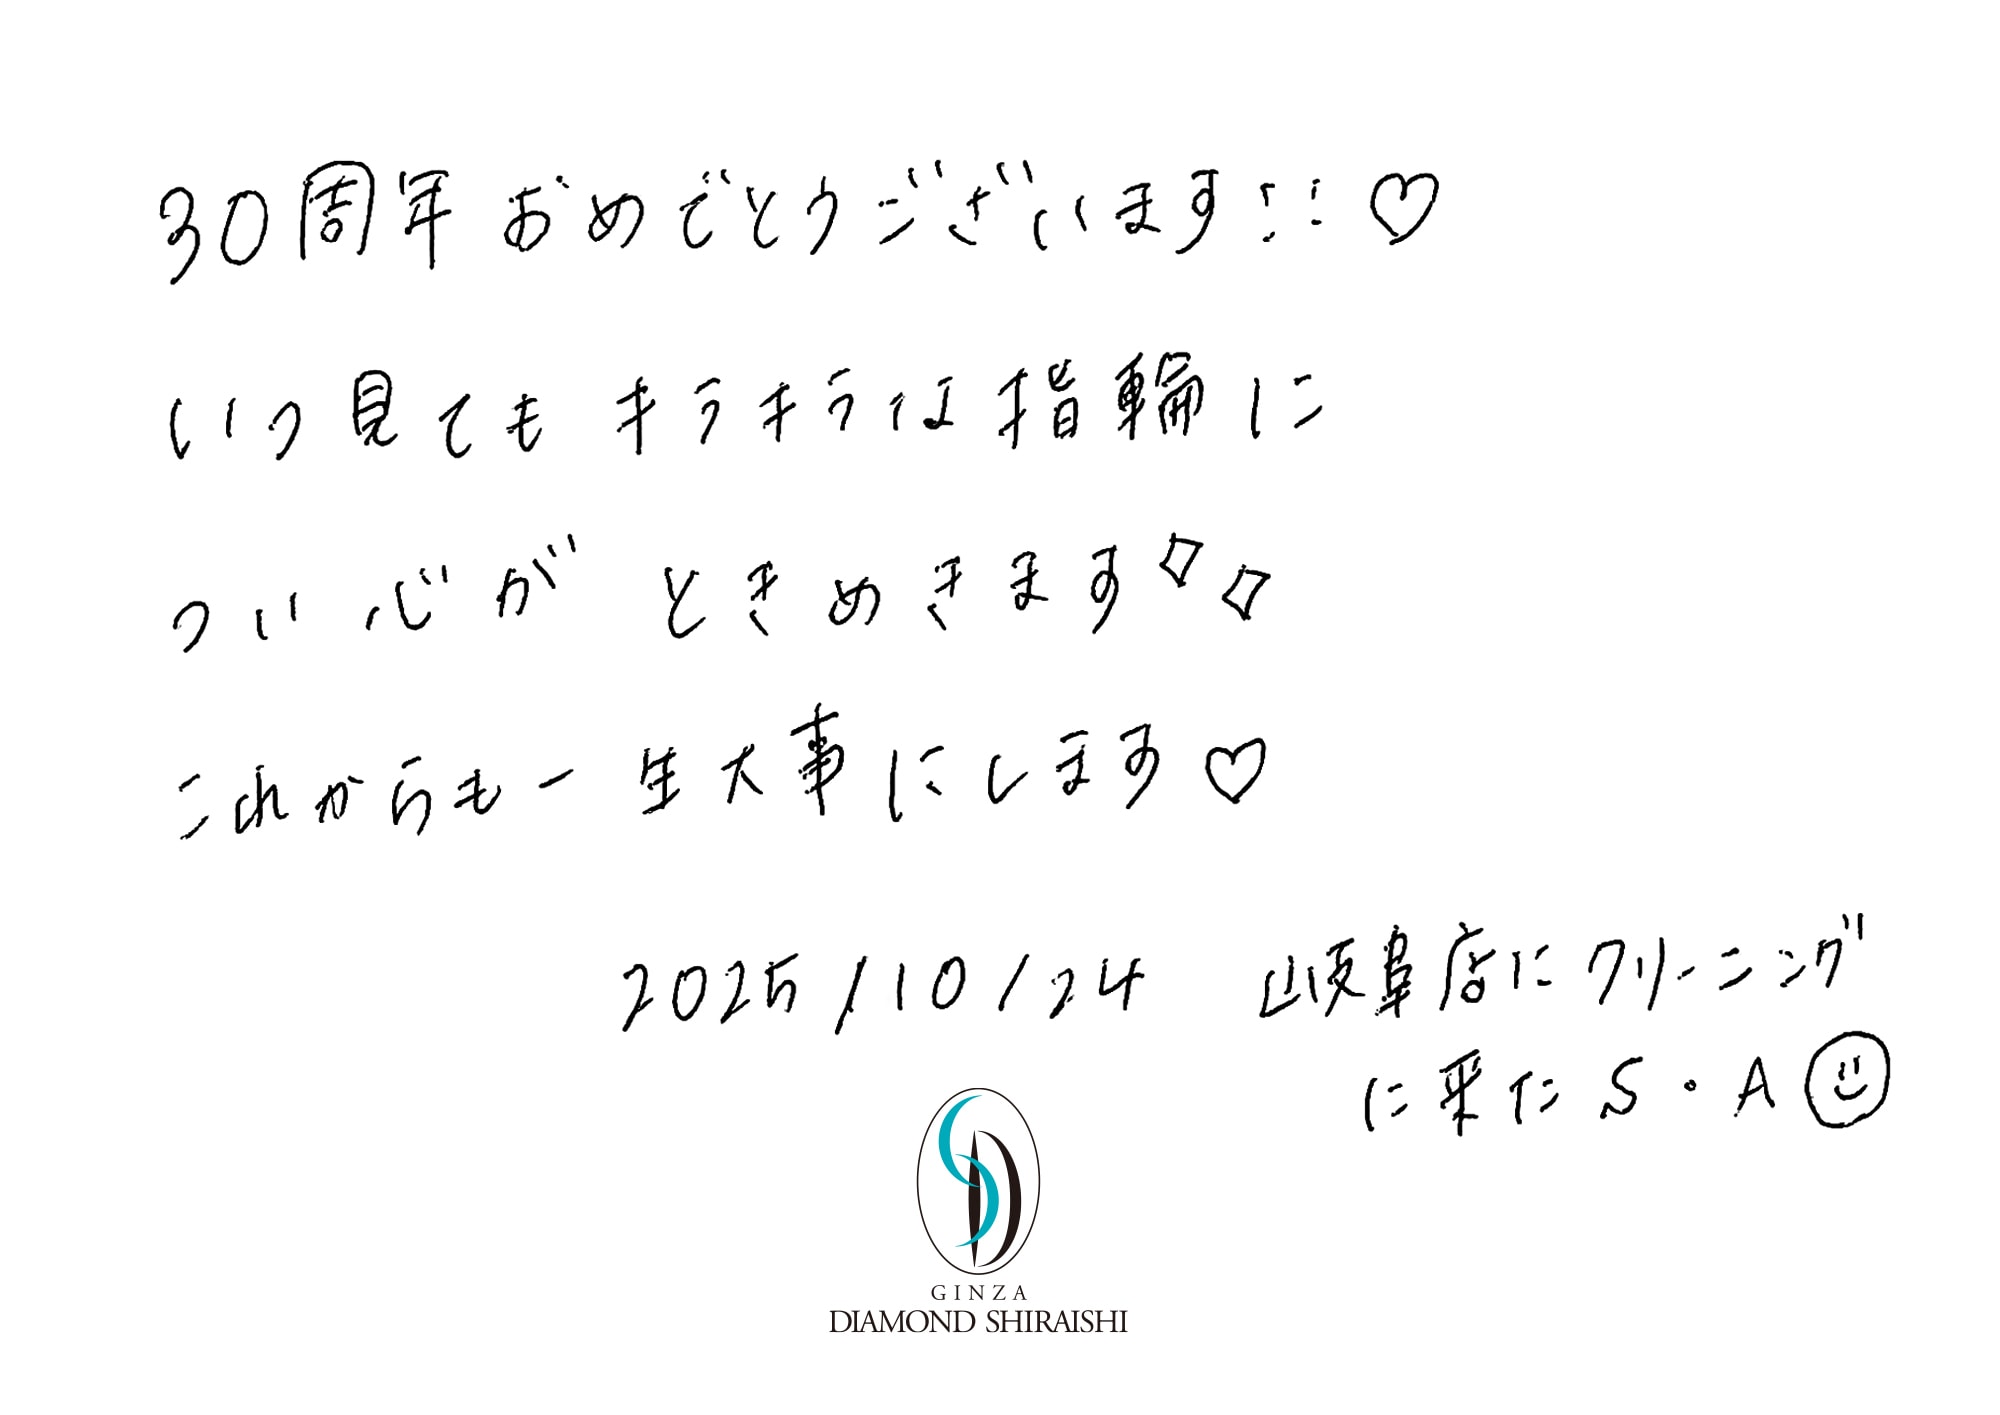 30周年おめでとうございます!!♡
いつ見てもキラキラな指輪に
つい心がときめきます
これからも一生大事にします♡
2025/10/24 岐阜店にクリーニング
に来たS・A
GINZA
DIAMOND SHIRAISHI